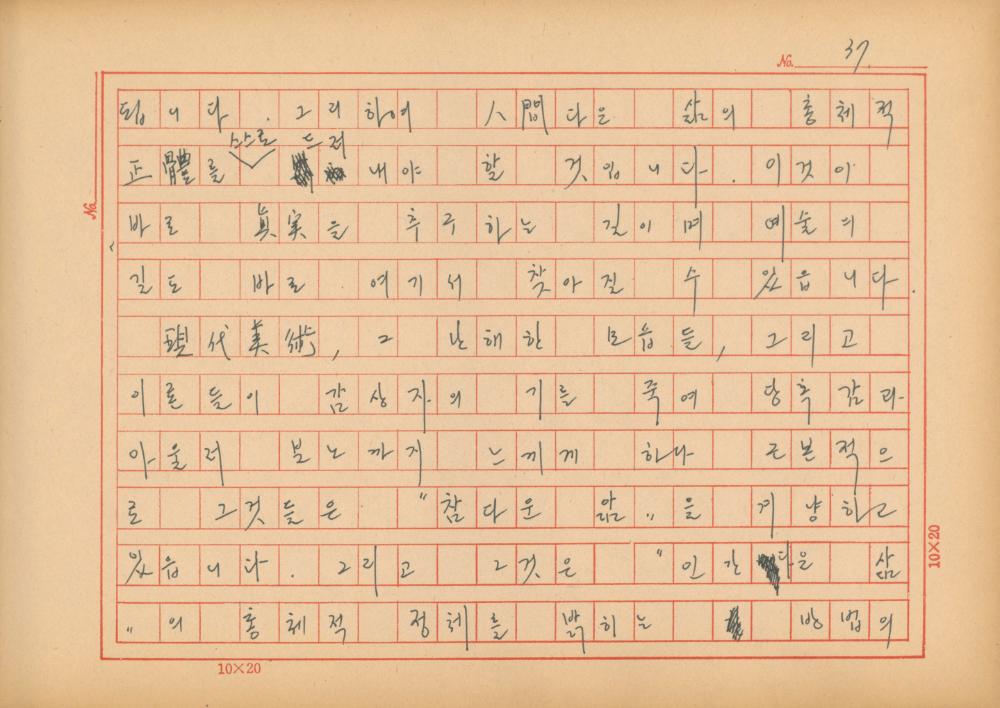 No. 37.
됩니다. 그리하여 人間다은 삶의 총체적
스스로 드려
正體를 내야 할 것입니다. 이것이
No.
바로 真実을 추구하는 길이며 예술의
길도 바로 여기서 찾아질 수 있읍니다.
現代美術, 그 난해한 모습들, 그리고
이론들이 감상자의 기를 죽여 당혹감과
아울러 분노까지 느끼게 하다 근본적으
로 그것들은 "참다운 앎"을 겨냥하고
있읍니다. 그리고 그것은 "인간다은 삶
"의 총체적 정체를 밝히는 방법의
10×20
10×20